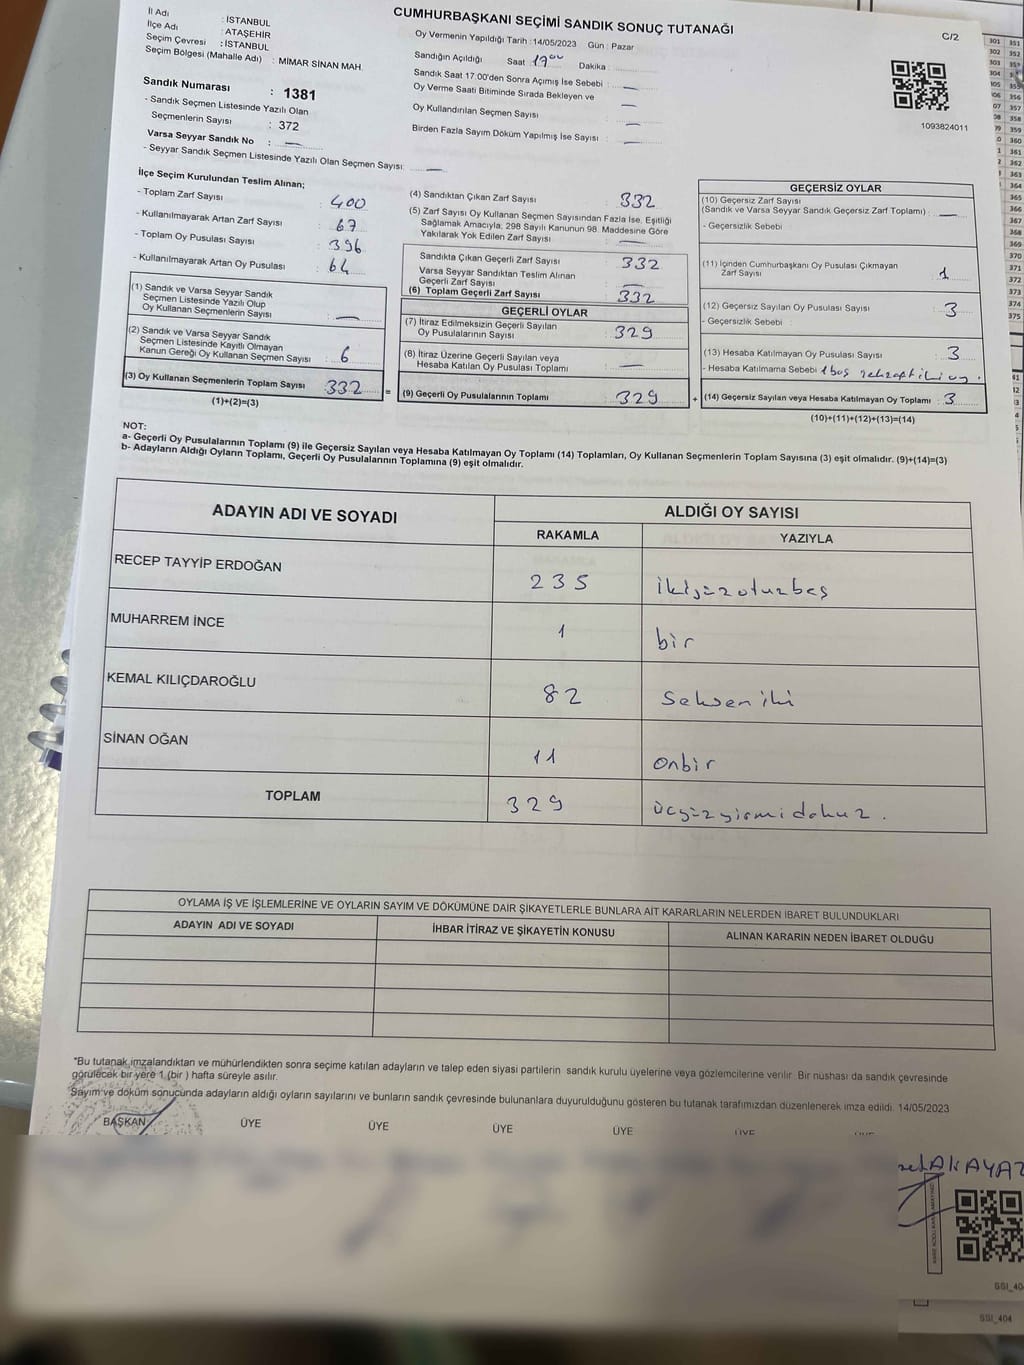 CUMHURBAŞKANI SEÇİMİ SANDIK SONUÇ TUTANAĞI
C/2
İl Adı : İSTANBUL
İlçe Adı : ATAŞEHİR
Seçim Çevresi : İSTANBUL
Seçim Bölgesi (Mahalle Adı) : MİMAR SİNAN MAH.
Sandık Numarası : 1381
- Sandık Seçmen Listesinde Yazılı Olan
Seçmenlerin Sayısı : 372
Varsa Seyyar Sandık No : —
- Seyyar Sandık Seçmen Listesinde Yazılı Olan Seçmen Sayısı: —
Oy Vermenin Yapıldığı Tarih : 14/05/2023 Gün : Pazar
Sandığın Açıldığı Saat 17:00 Dakika :
Sandık Saat 17:00'den Sonra Açımış İse Sebebi : —
Oy Verme Saati Bitiminde Sırada Bekleyen ve
Oy Kullandırılan Seçmen Sayısı : —
Birden Fazla Sayım Döküm Yapılmış İse Sayısı : —
1093824011
İlçe Seçim Kurulundan Teslim Alınan;
- Toplam Zarf Sayısı : 400
- Kullanılmayarak Artan Zarf Sayısı : 67
- Toplam Oy Pusulası Sayısı : 396
- Kullanılmayarak Artan Oy Pusulası : 64
(1) Sandık ve Varsa Seyyar Sandık
Seçmen Listesinde Yazılı Olup
Oy Kullanan Seçmenlerin Sayısı : —
(2) Sandık ve Varsa Seyyar Sandık
Seçmen Listesinde Kayıtlı Olmayan
Kanun Gereği Oy Kullanan Seçmen Sayısı : 6
(3) Oy Kullanan Seçmenlerin Toplam Sayısı : 332 =
(1)+(2)=(3)
(4) Sandıktan Çıkan Zarf Sayısı : 332
(5) Zarf Sayısı Oy Kullanan Seçmen Sayısından Fazla İse, Eşitliği
Sağlamak Amacıyla, 298 Sayılı Kanunun 98. Maddesine Göre
Yakılarak Yok Edilen Zarf Sayısı : —
Sandıkta Çıkan Geçerli Zarf Sayısı : 332
Varsa Seyyar Sandıktan Teslim Alınan
Geçerli Zarf Sayısı : —
(6) Toplam Geçerli Zarf Sayısı : 332
GEÇERLİ OYLAR
(7) İtiraz Edilmeksizin Geçerli Sayılan
Oy Pusulalarının Sayısı : 329
(8) İtiraz Üzerine Geçerli Sayılan veya
Hesaba Katılan Oy Pusulası Toplamı : —
(9) Geçerli Oy Pusulalarının Toplamı : 329 +
GEÇERSİZ OYLAR
(10) Geçersiz Zarf Sayısı
(Sandık ve Varsa Seyyar Sandık Geçersiz Zarf Toplamı) : —
- Geçersizlik Sebebi
(11) İçinden Cumhurbaşkanı Oy Pusulası Çıkmayan
Zarf Sayısı : 1
(12) Geçersiz Sayılan Oy Pusulası Sayısı : 3
- Geçersizlik Sebebi :
(13) Hesaba Katılmayan Oy Pusulası Sayısı : 3
- Hesaba Katılmama Sebebi 1 boş
(14) Geçersiz Sayılan veya Hesaba Katılmayan Oy Toplamı : 3
(10)+(11)+(12)+(13)=(14)
NOT:
a- Geçerli Oy Pusulalarının Toplamı (9) ile Geçersiz Sayılan veya Hesaba Katılmayan Oy Toplamı (14) Toplamları, Oy Kullanan Seçmenlerin Toplam Sayısına (3) eşit olmalıdır. (9)+(14)=(3)
b- Adayların Aldığı Oyların Toplamı, Geçerli Oy Pusulalarının Toplamına (9) eşit olmalıdır.
ADAYIN ADI VE SOYADI
ALDIĞI OY SAYISI
RAKAMLA YAZIYLA
RECEP TAYYİP ERDOĞAN 235 ikiyüzotuzbeş
MUHARREM İNCE 1 bir
KEMAL KILIÇDAROĞLU 82 Seksen iki
SİNAN OĞAN 11 onbir
TOPLAM 329 üçyüzyirmidokuz.
OYLAMA İŞ VE İŞLEMLERİNE VE OYLARIN SAYIM VE DÖKÜMÜNE DAİR ŞİKAYETLERLE BUNLARA AİT KARARLARIN NELERDEN İBARET BULUNDUKLARI
ADAYIN ADI VE SOYADI İHBAR İTİRAZ VE ŞİKAYETİN KONUSU ALINAN KARARIN NEDEN İBARET OLDUĞU
*Bu tutanak imzalandıktan ve mühürlendikten sonra seçime katılan adayların ve talep eden siyasi partilerin sandık kurulu üyelerine veya gözlemcilerine verilir. Bir nüshası da sandık çevresinde
görülecek bir yere 1 (bir ) hafta süreyle asılır.
Sayım ve döküm sonucunda adayların aldığı oyların sayılarını ve bunların sandık çevresinde bulunanlara duyurulduğunu gösteren bu tutanak tarafımızdan düzenlenerek imza edildi. 14/05/2023
BAŞKAN ÜYE ÜYE ÜYE ÜYE ÜYE
AKAYAZ
SSI_404